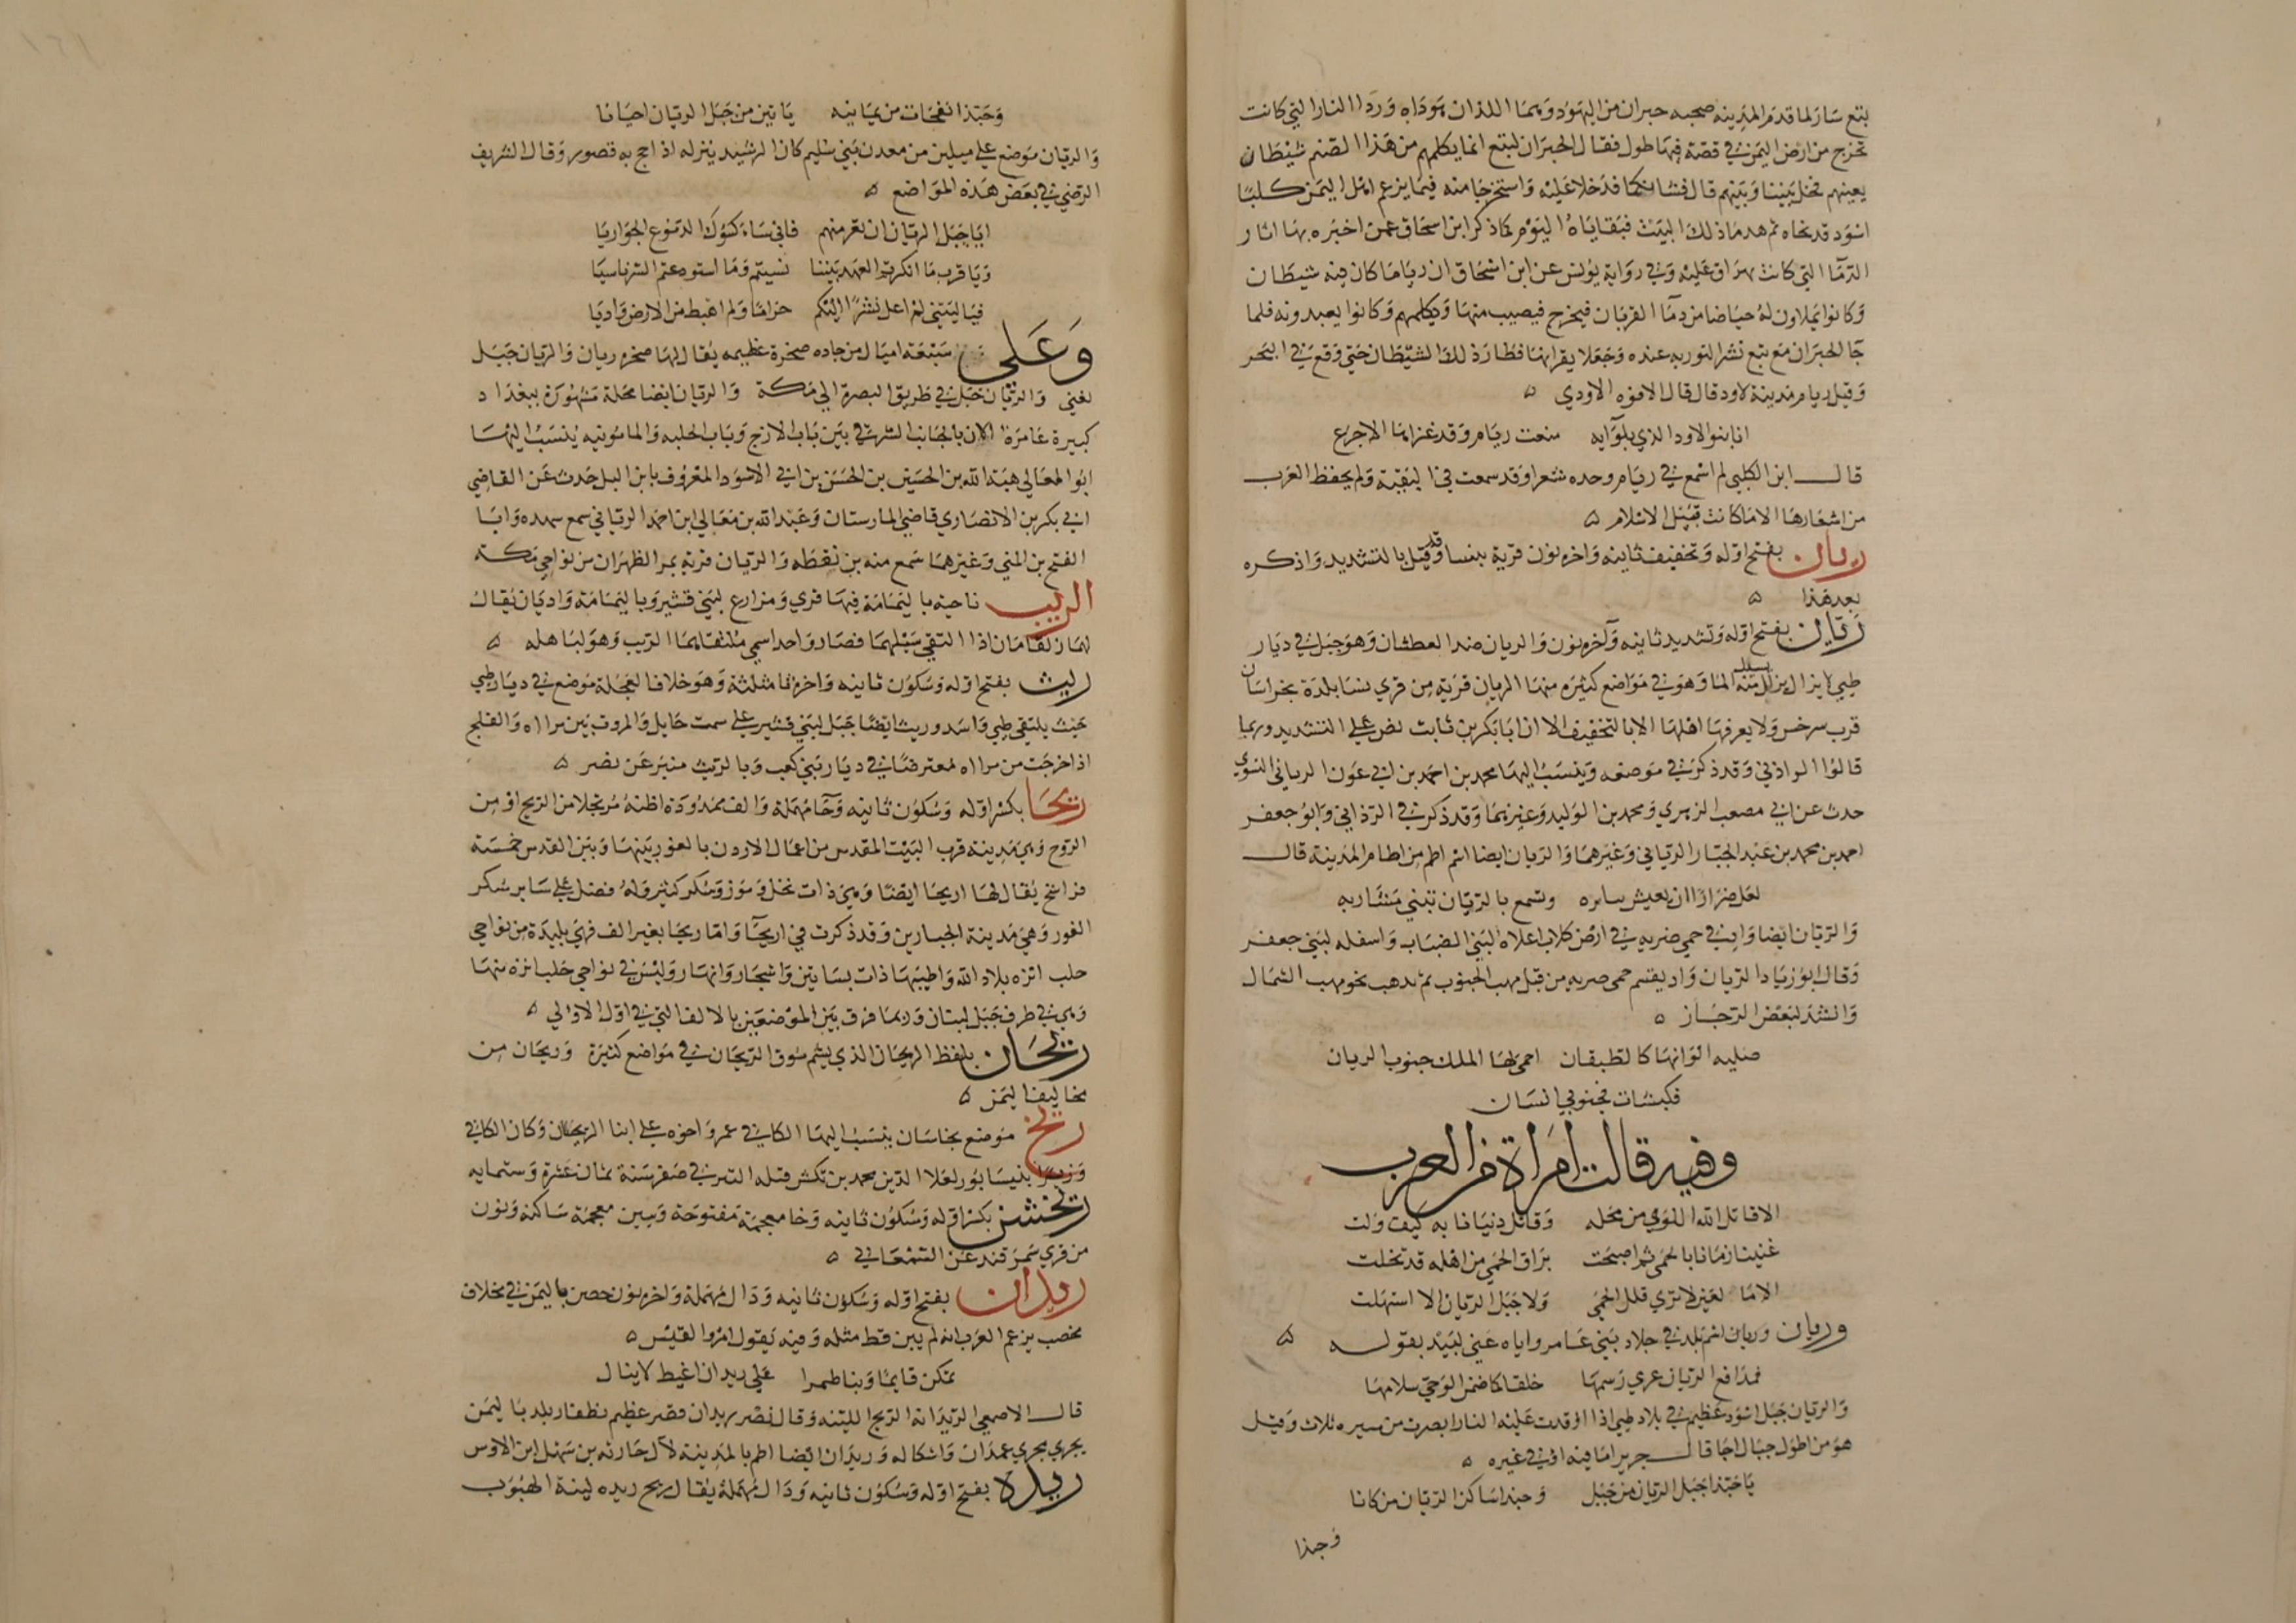 بتع سار لما قدم المدينه صحبه حبران من اليهود وهما اللذان هوداه وردا النار التي كانت
تخرج من ارض اليمن في قصة فيها طول فقال الحبران لتبع انما يكلمهم من هذا الصنم شيطان
يعينهم فخل بيننا وبينهم قال فشانكما فدخلا عليه واستخرجا منه فيما يزعم اهل اليمن كلبا
اسود قد نحاه ثم هدما ذلك البيت فبقاياه اليوم كما ذكر ابن اسحاق عمن اخبره بها اثار
الدما التي كانت تهراق عليه وفي رواية يونس عن ابن اسحاق ان رياما كان فيه شيطان
وكانوا يملاون له حياضا من دما القربان فيخرج فيصيب منها ويكلمهم وكانوا يعبدونه فلما
جا الحبران مع تبع نشرا التوريه عنده وجعلا يقرانها فطار ذلك الشيطان حتى وقع في البحر
وقيل ريام مدينة لاود قال قال الافوه الاودي
انا بنوا الاود الذي بلوايه منعت ريام وقد غزاها الاجرع
قال ابن الكلبي لم اسمع في ريام وحده شعرا وقد سمعت في البقية ولم يحفظ العرب
من اشعارها الا ما كانت قبيل الاسلام
ريان بفتح اوله وتخفيف ثانيه واخره نون قرية بنسا وقد قيل بالتشديد واذكره
بعد هذا
ريان بفتح اوله وتشديد ثانيه وآخره نون والريان ضد العطشان وهو جبل في ديار
طيي لا يزال يسيل منه الما وهو في مواضع كثيره منها الريان قرية من قري نسا بلدة بخراسان
قرب سرخس ولا يعرفها اهلها الا بالتخفيف الا ان ابا بكر بن ثابت نص على التشديد وربما
قالوا الرذاني وقد ذكر في موضعه وينسب اليها محمد بن احمد بن ابي عون الرياني النسوي
حدث عن ابي مصعب الزهري ومحمد بن الوليد وغيرهما وقد ذكر في الرذاني وابو جعفر
احمد بن محمد بن عبد الجبار الرياني وغيرهما والريان ايضا اسم اطم من اطام المدينة قال
لعل ضرارا ان يعيش بياره وتسمع بالريان تبني مشاربه
والريان ايضا واد في حمي ضريه في ارض كلاب اعلاه لبني الضباب واسفله لبني جعفر
وقال ابو زياد الريان واد يقسم حمى ضريه من قبل مهب الجنوب ثم يذهب نحو مهب الشمال
وانشد لبعض الرجاز
خليه ابوابها كالطبقان احمى لها الملك جنوب الريان
فكبشات فجنوبي انسان
وفيه قالت امراة من العرب
الا قاتل الله اللوي من محله وقاتل دنيانا به كيف ولت
غنينا زمانا بالحمى ثم اصبحت براق الحمى من اهله قد تخلت
الا ما لعين لا ترى قلل الحمي ولا جبل الريان الا استهلت
وريان وريان اسم بلد في بلاد بني عامر واياه عنى لبيد بقوله
فمدافع الريان عري رسمها خلقا كما ضمن الوحي سلامها
والريان جبل اسود عظيم في بلاد طيي اذا اوقدت عليه النار ابصرت من مسيره ثلاث وقيل
هو من اطول جبال اجا قال جرير اما فيه او في غيره
يا حبذا جبل الريان من جبل وحبذا ساكن الريان من كانا
وحبذا
وحبذا نفحات من يمانيه ياتين من جبل الريان احيانا
والريان موضع على ميلين من معدن بني سليم كان الرشيد ينزله اذا حج به قصور وقال الشريف
الرضي في بعض هذه المواضع
ايا جبل الريان ان تعر منهم فاني ساكسوك الدموع الجواريا
ويا قرب ما انكرتم العهد بيننا نسيتم وما استودعتم السر ناسيا
فيا ليتني لم اعل نشزا اليكم حراما ولم اهبط من الارض واديا
وعلى سبعة اميال من حاده صخرة عظيمه يقال لها صخره ريان والريان جبل
لغني والريان جبل في طريق البصرة الي مكة والريان ايضا محلة مشهورة ببغداد
كبيرة عامرة الان بالجانب الشرقي بين باب الازج وباب الحلبه والمامونيه ينسب اليها
ابو المعالي هبة الله بن الحسين بن الحسن بن ابي الاسود المعروف بابن البل حدث عن القاضي
ابي بكر بن الانصاري قاضي المارستان وعبد الله بن معالي ابن احمد الرياني سمع شهده وابا
الفتح بن المني وغيرهما سمع منه بن نقطه والريان قرية بمر الظهران من نواحي مكة
الريب ناحيه باليمامة فيها قري ومزارع لبني قشير وباليمامة واديان يقال
لهما زلقامان اذا التقي سيلهما فصار واحدا سمي ملتقاهما الريب وهو لباهله
ريث بفتح اوله وسكون ثانيه واخره ثا مثلثة وهو خلاف العجلة موضع في ديار طيي
حيث يلتقي طيي واسد وريث ايضا جبل لبني قشير على سمت حايل والمروت بين مراه والفلج
اذا خرجت من مراه لمعترضا في ديار بني كعب وبالريث منبر عن نصر
ريحا بكسر اوله وسكون ثانيه وحا مهملة والف ممدودة اظنه مرتجلا من الريح او من
الروح وهي مدينة قرب البيت المقدس من اعمال الاردن بالغور بينها وبين القدس خمسة
فراسخ يقال لها اريحا ايضا وهي ذات نخل وموز وسكر كثير وله فضل على ساير سكر
الغور وهي مدينة الجبارين وقد ذكرت في اريحا واما ريحا بغير الف فهي بليدة من نواحي
حلب انزه بلاد الله واطيبها ذات بساتين واشجار وانهار وليس في نواحي حلب انزه منها
وهي في طرف جبل لبنان وربما فرق بين الموضعين بالالف التي في اول الاولي
ريحان بلفظ الريحان الذي يشم سوق الريحان في مواضع كثيرة وريحان من
مخاليف اليمن
ريخ موضع بخراسان ينسب اليها الكافي عمر واخوه على ابنا الريخان وكان الكافي
وزيرا بنيسابور لعلا الدين محمد بن تكش قتله التتر في صفر سنة ثمان عشرة وستمايه
ريخشن بكسر اوله وسكون ثانيه وخا معجمة مفتوحة وشين معجمة ساكنة ونون
من قري سمرقند عن السمعاني
ريدان بفتح اوله وسكون ثانيه ودال مهملة واخره نون حصن باليمن في مخلاف
يحصب يزعم العرب انه لم يبن قط مثله وفيه يقول امرؤا القيس
تمكن قايما وبنا طمرا على ريدان اغيط لا ينال
قال الاصمعي الريدانه الريح اللينه وقال نصر ريدان قصر عظيم بظفار بلد باليمن
يجري مجري غمدان واشكاله وريدان ايضا اطم بالمدينة لآل حارثه بن سهل ابن الاوس
ريدة بفتح اوله وسكون ثانيه ودال مهملة يقال ريح ريده لينة الهبوب